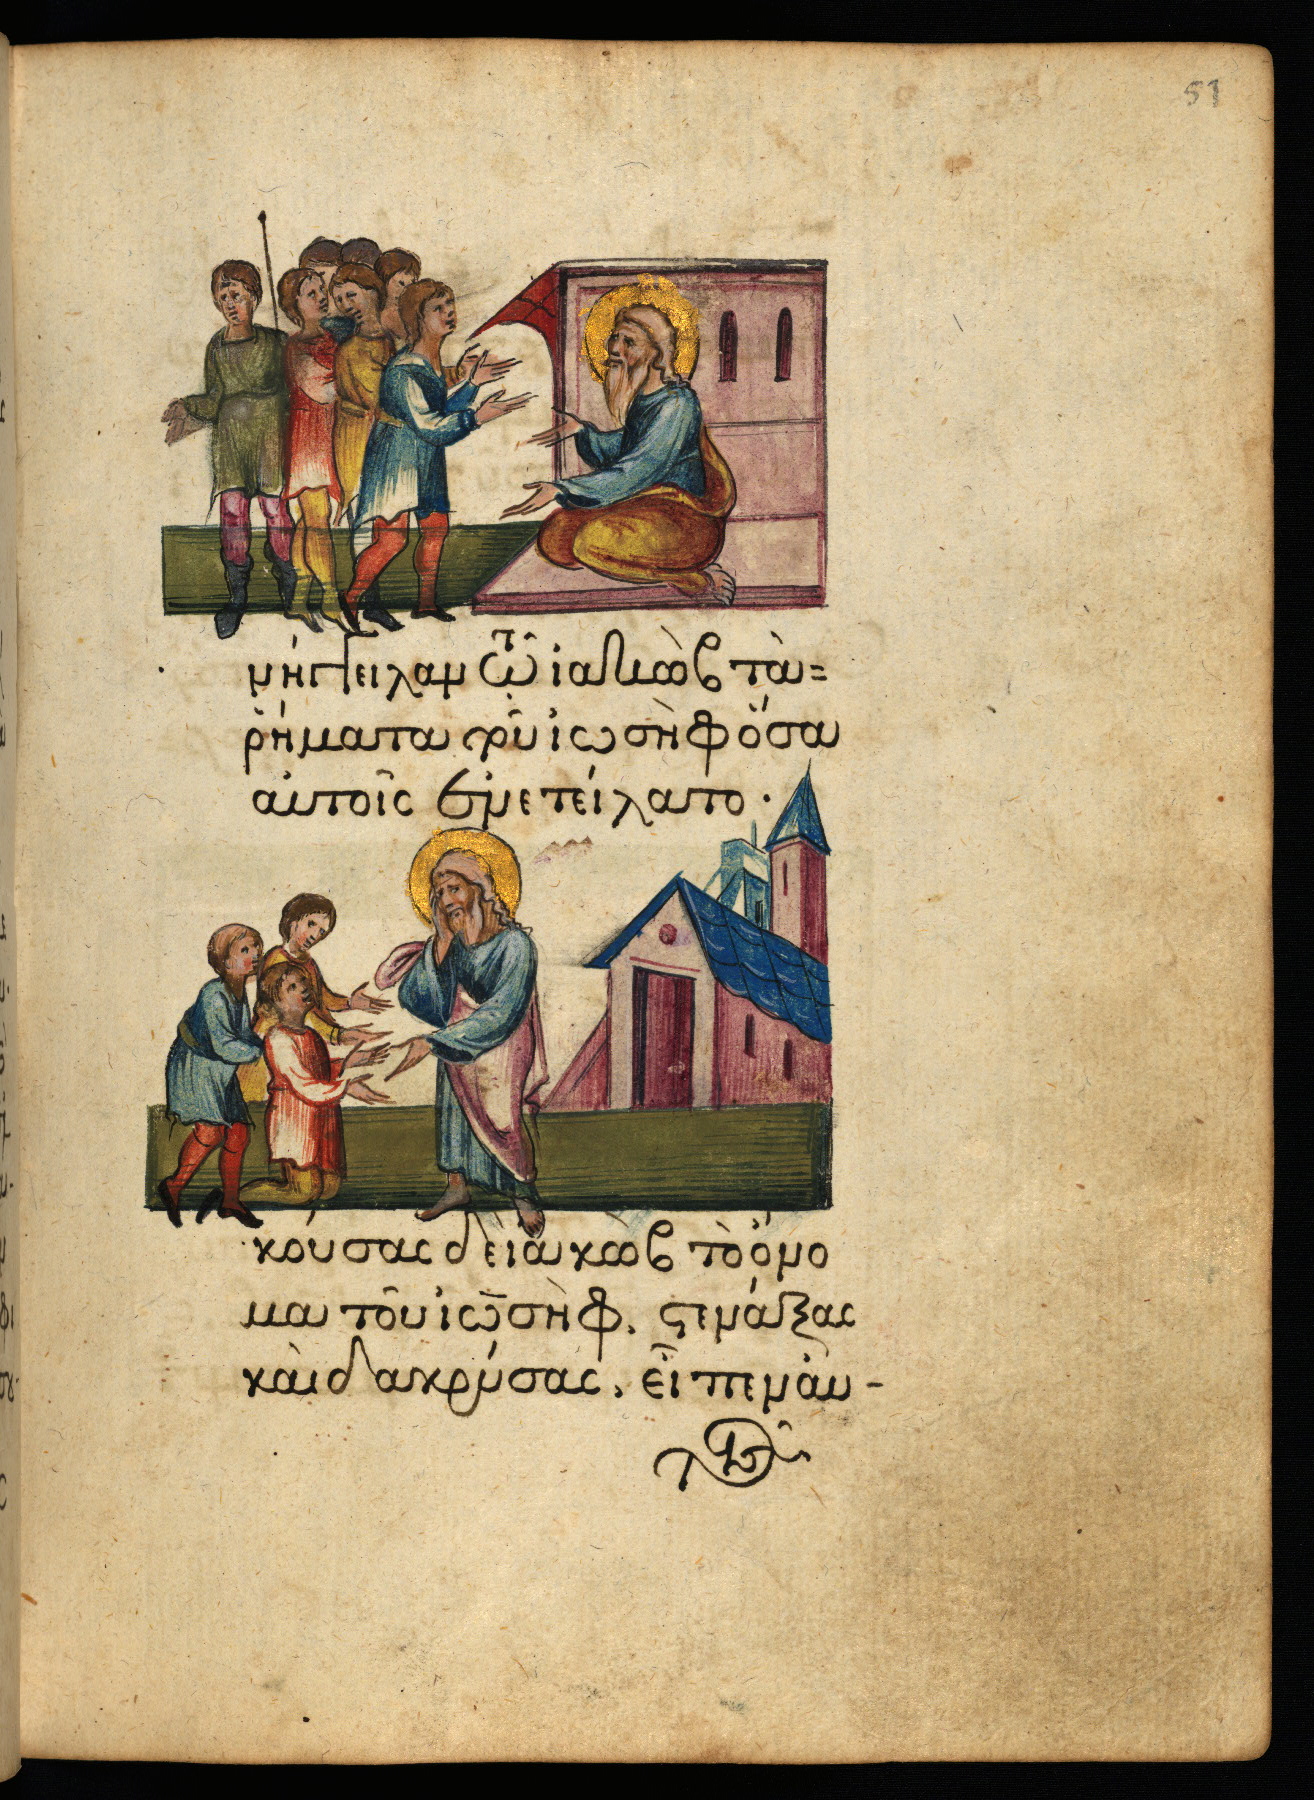 51
νήγγειλαν τῶ ἰακὼβ τὰ=
ῥήματα τοῦ ἰωσὴφ ὅσα
αὐτοῖς ἐνετείλατο·
κούσας δε ἰακὼβ τὸ ὄνο
μα τοῦ ἰωσὴφ, στενάξας
καὶ δακρύσας, εἶπεν αὐ-